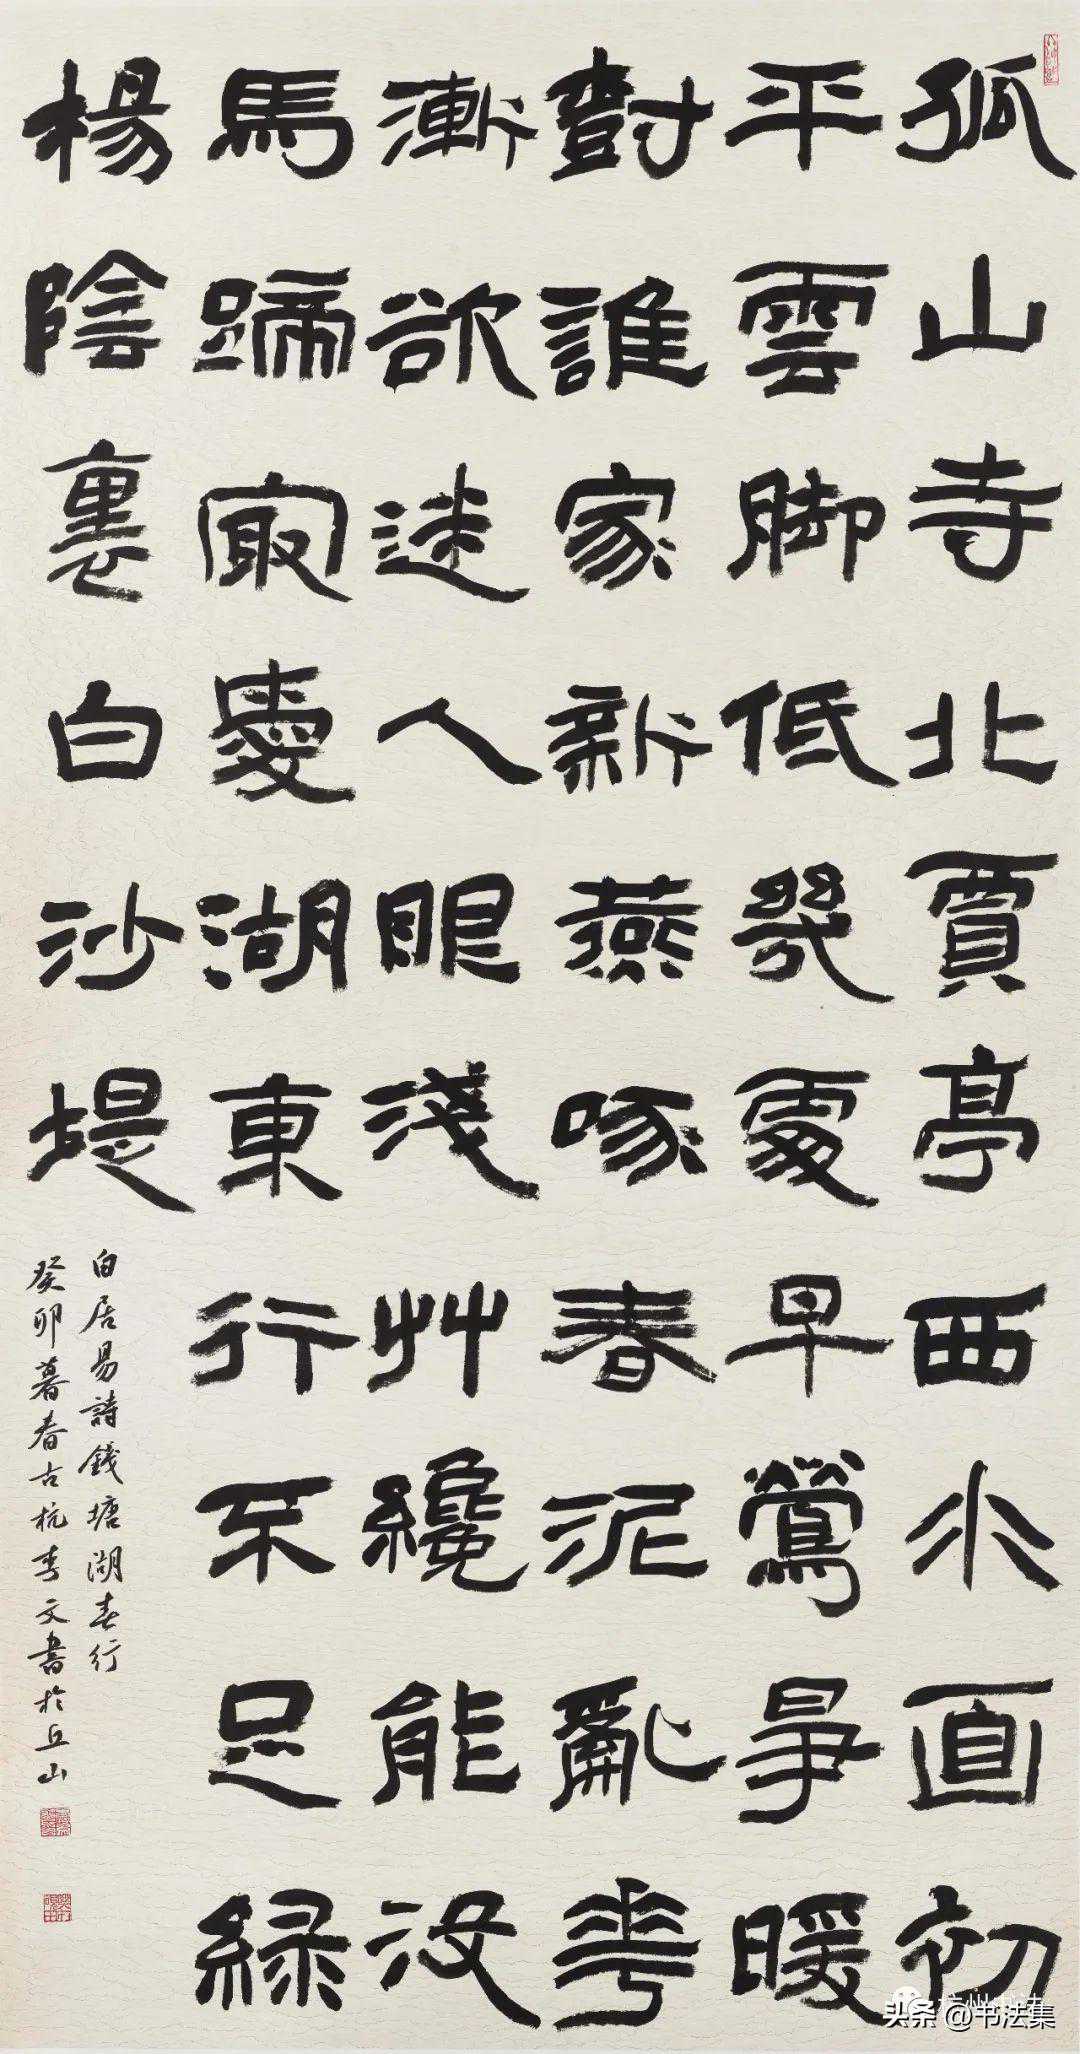 孤山寺北賈亭西水面初
平雲脚低幾處早鶯爭暖
樹誰家新燕啄春泥亂花
漸欲迷人眼淺艸纔能没
馬蹄最愛湖東行不足緑
楊陰裏白沙堤
白居易詩錢塘湖春行
癸卯暮春古杭李文書於丘山
头条 @书法集